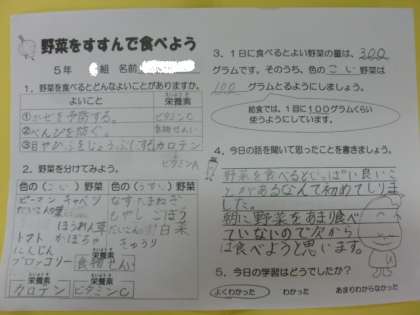 野菜をすすんで食べよう
5年 組 名前
1．野菜を食べるとどんなよいことがありますか。
よいこと 栄養素
①かぜを予防する。 ビタミンC
②べんぴを防ぐ。 食物せんい
③目やひふをじょうぶにする カロテン
ビタミンA
2．野菜を分けてみよう。
色の（こい）野菜
ピーマン
だいこんの葉
ほうれん草
トマト かぼちゃ
にんじん
ブロッコリー
栄養素
カロテン
色の（うすい）野菜
キャベツ
なす たまねぎ
もやし ごぼう
だいこん 白菜
きゅうり
食物せんい
栄養素
ビタミンC
3．1日に食べるとよい野菜の量は、300
グラムです。そのうち、色のこい野菜は
100 グラムとるようにしましょう。
給食では、1回に100グラムくらい
使うようにしています。
4．今日の話を聞いて思ったことを書きましょう。
野菜を食べるといっぱいに良いこ
とがあるなんて初めてしりま
した。
朝に野菜をあまり食べ
ていないので次から
は食べようと思います。
5．今日の学習はどうでしたか？
よくわかった わかった あまりわからなかった